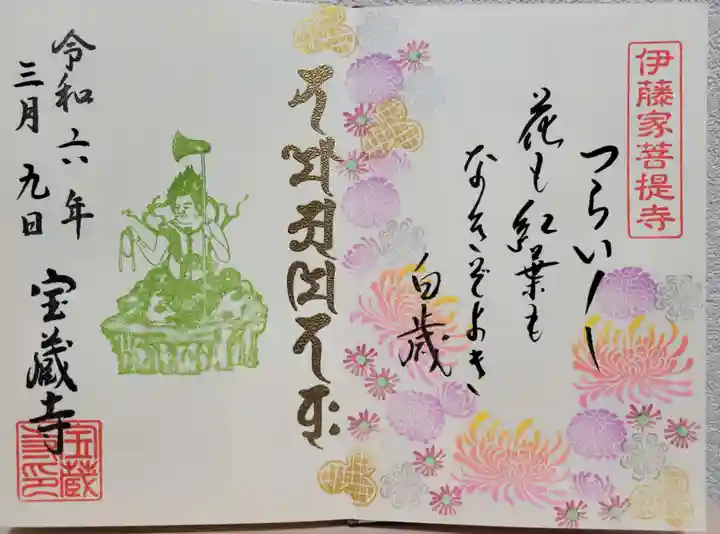 伊藤家菩提寺
つらい〳〵
花も紅葉も
なきぞよき
白歳
令和六年
三月九日
宝蔵寺
宝蔵
寺印